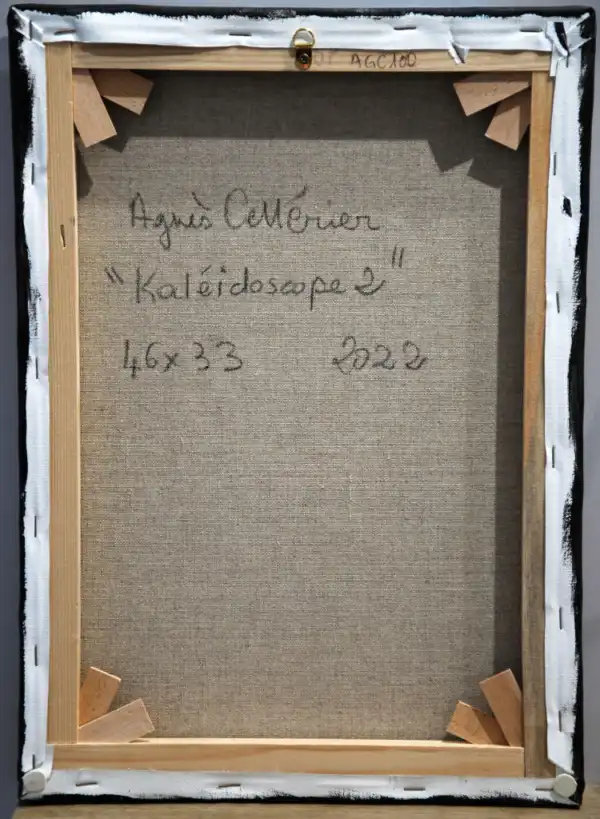 AGC100
Agnès Cellérier
"Kaléidoscope 2"
46x33 2022